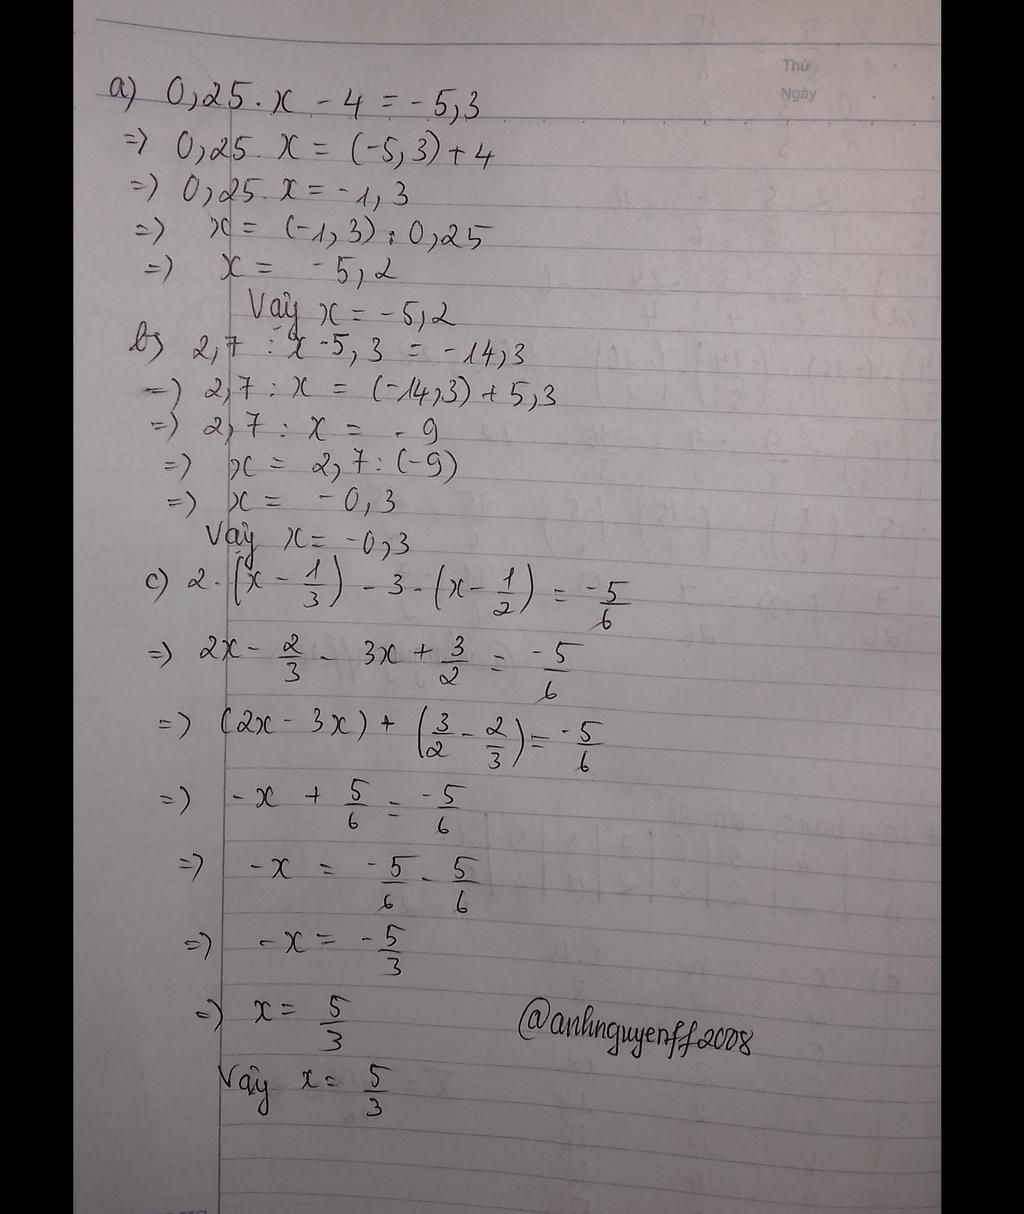 Thứ
Ngày
a) 0,25.x - 4 = -5,3
=) 0,25.x = (-5,3)+4
=) 0,25.x = -1,3
=) x = (-1,3):0,25
=) x = -5,2
Vậy x = -5,2
b) 2,7 : x -5,3 = -14,3
=) 2,7 : x = (-14,3)+5,3
=) 2,7 : x = -9
=) x = 2,7:(-9)
=) x = -0,3
Vậy x = -0,3
c) 2.(x - 1/3) - 3.(x - 1/2) = -5/6
=) 2x - 2/3 - 3x + 3/2 = -5/6
=) (2x - 3x) + (3/2 - 2/3) = -5/6
=) -x + 5/6 = -5/6
=) -x = -5/6 - 5/6
=) -x = -5/3
=) x = 5/3
@anhnguyenff2008
Vậy x = 5/3